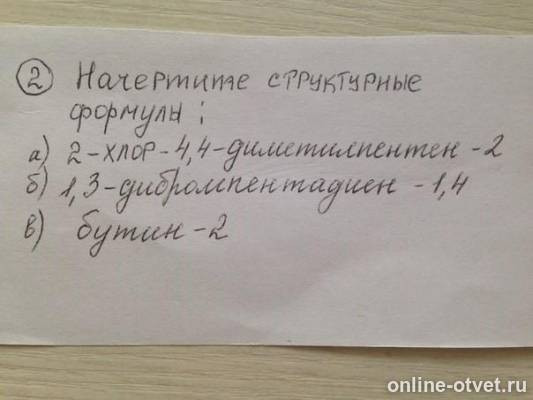 2 Начертите структурные
формулы:
а) 2-хлор-4,4-диметилпентен-2
б) 1,3-дибромпентадиен-1,4
в) бутин-2
online-otvet.ru